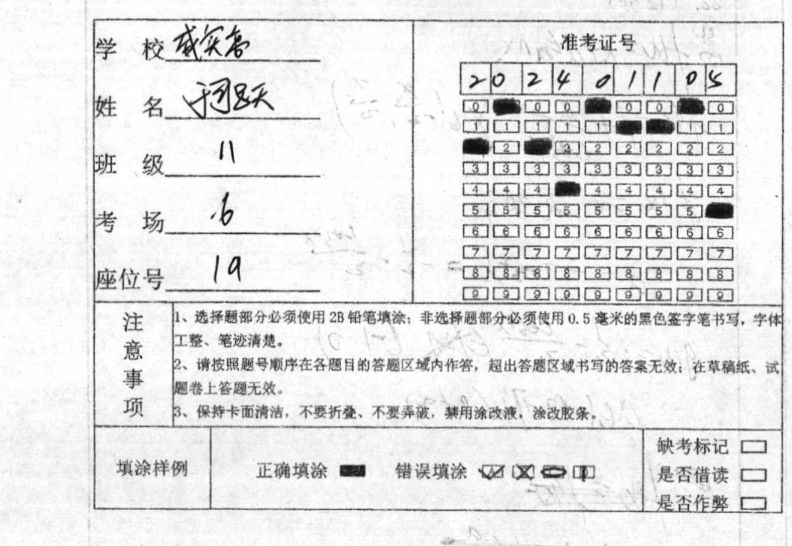 学 校 成实高
准考证号
2 0 2 4 0 1 1 0 5
姓 名
班 级 11
考 场 6
座位号 19
0 0 0 0 0 0
1 1 1 1 1 1 1
2 2 2 2 2 2 2
3 3 3 3 3 3 3 3 3
4 4 4 4 4 4 4 4
5 5 5 5 5 5 5 5
6 6 6 6 6 6 6 6 6
7 7 7 7 7 7 7 7 7
8 8 8 8 8 8 8 8 8
9 9 9 9 9 9 9 9 9
注意事项
1、选择题部分必须使用 2B 铅笔填涂；非选择题部分必须使用 0.5 毫米的黑色签字笔书写，字体
工整、笔迹清楚。
2、请按照题号顺序在各题目的答题区域内作答，超出答题区域书写的答案无效；在草稿纸、试
题卷上答题无效。
3、保持卡面清洁，不要折叠、不要弄破，禁用涂改液，涂改胶条。
填涂样例 正确填涂 错误填涂
缺考标记
是否借读
是否作弊